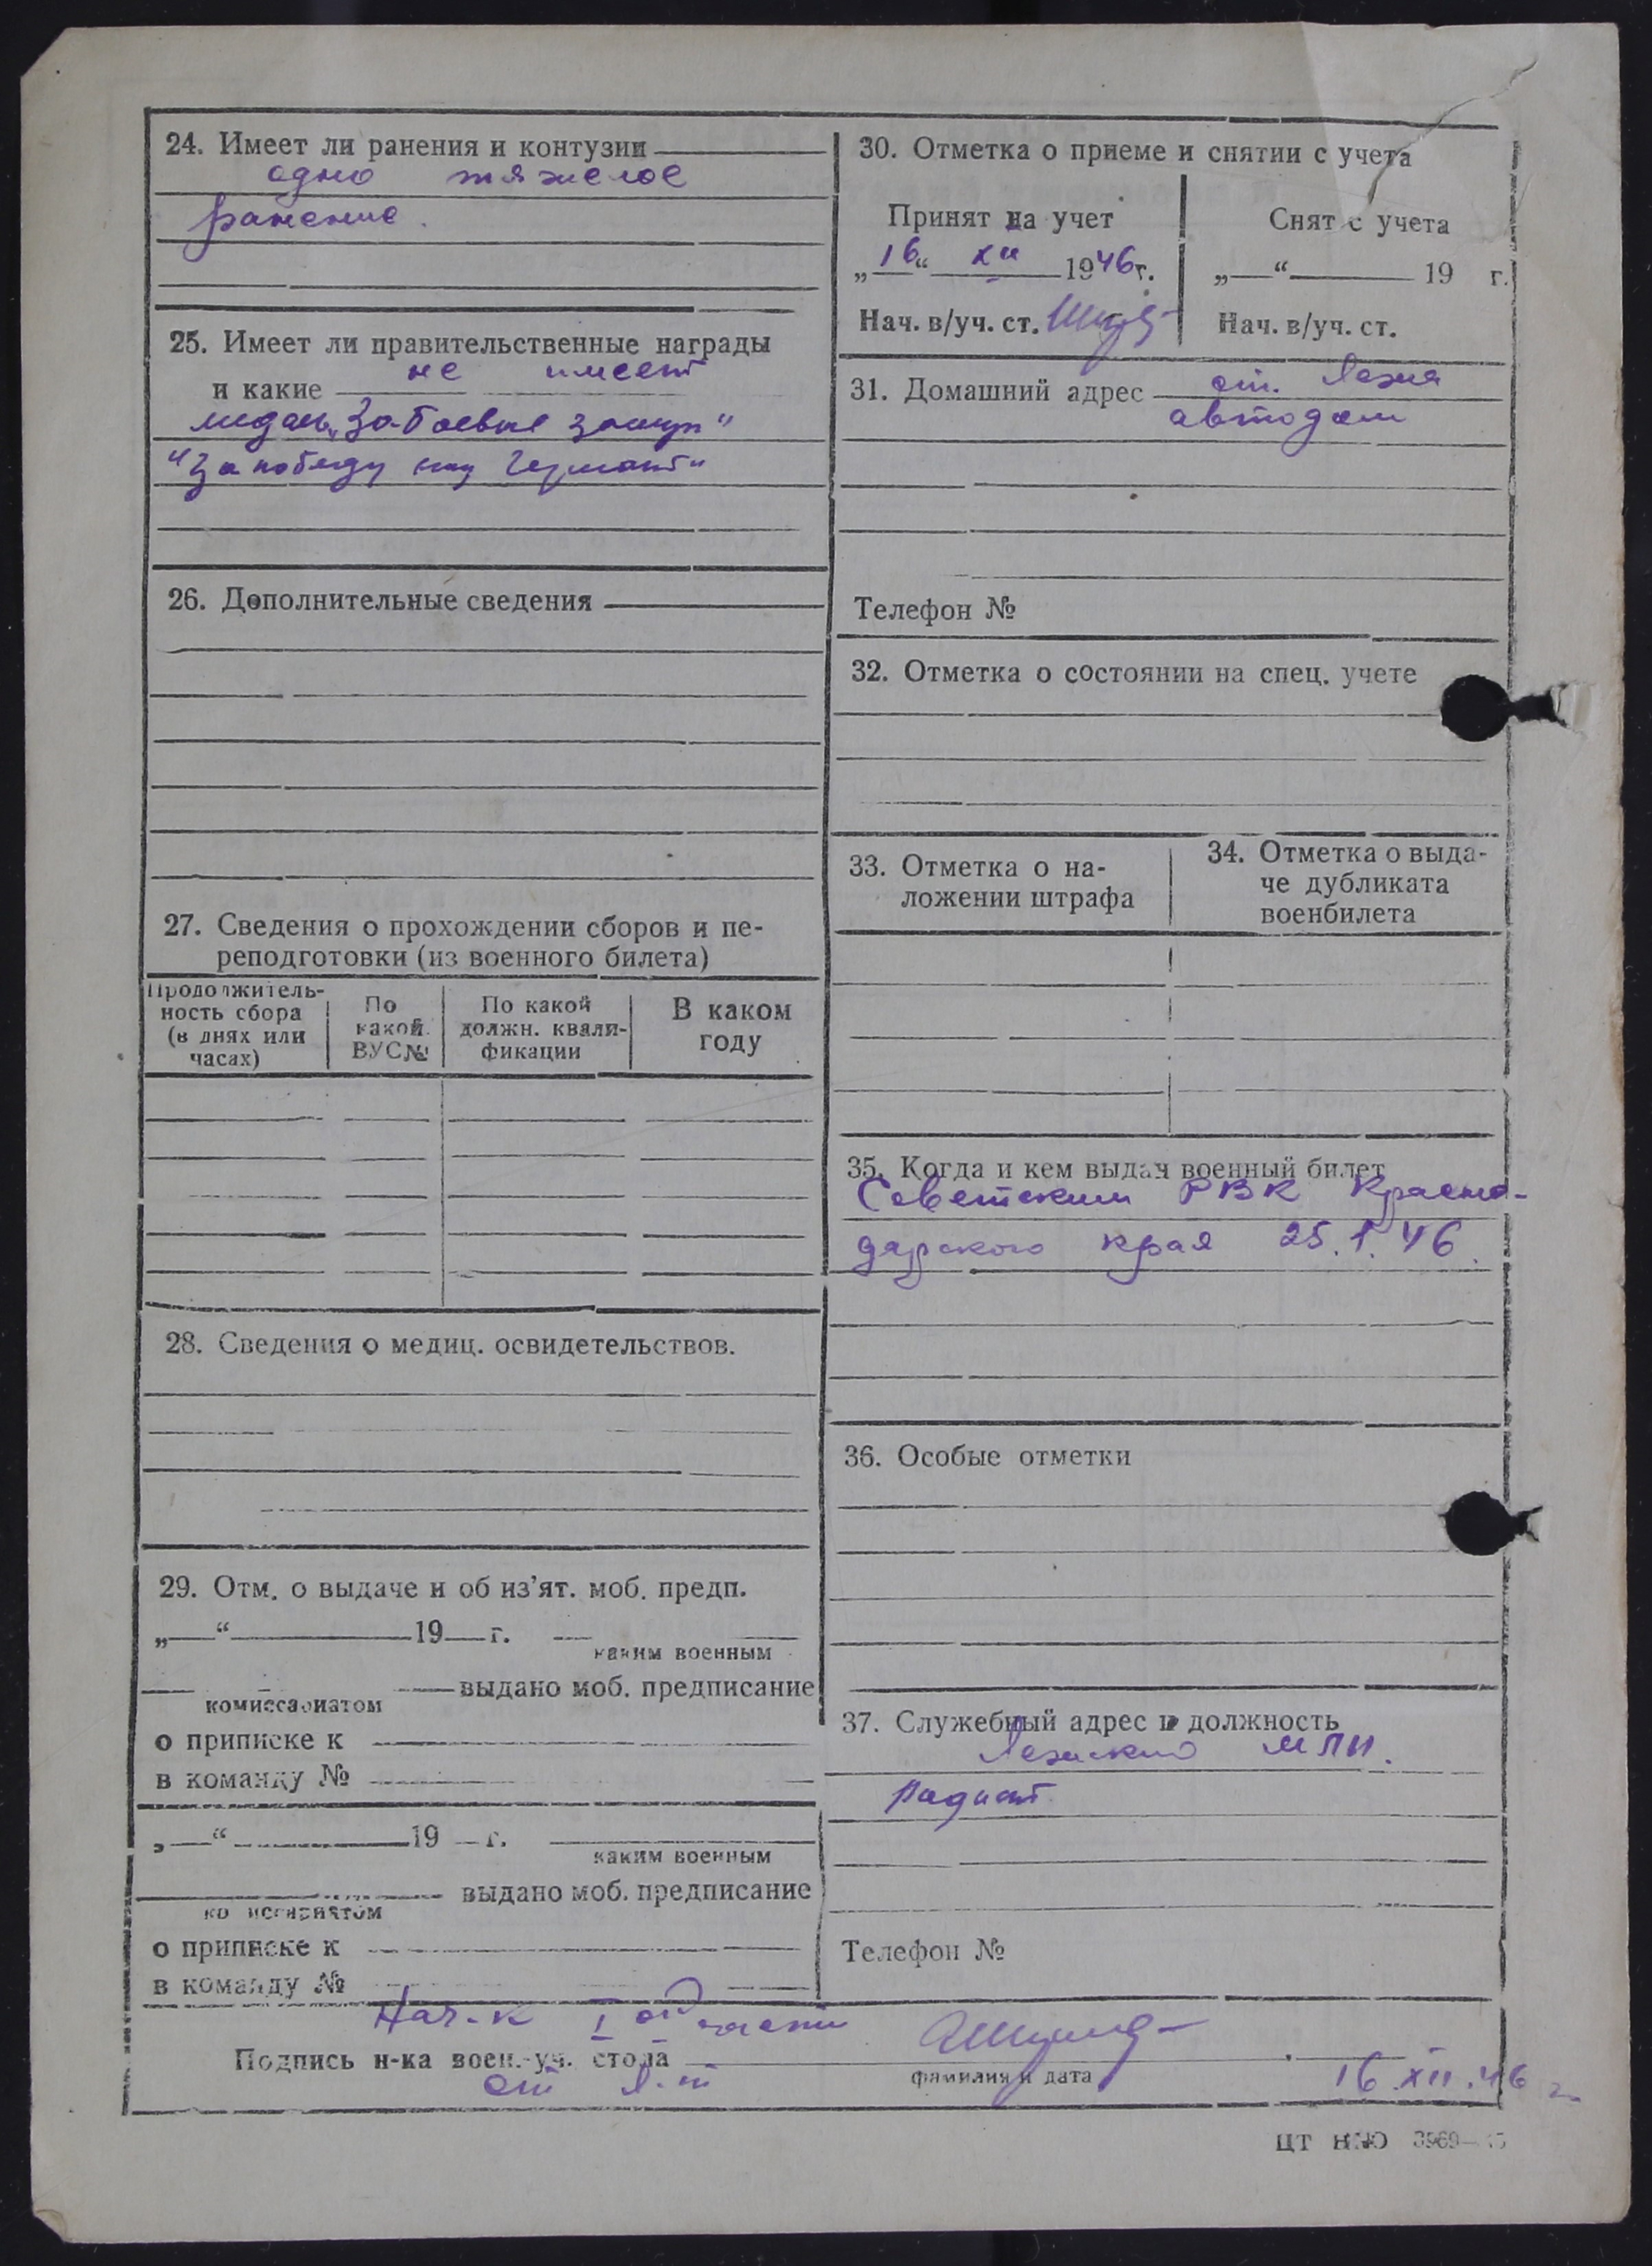 24. Имеет ли ранения и контузии
одно тяжелое
ранение.
25. Имеет ли правительственные награды
и какие не имеет
медаль „За боевые заслуги"
"За победу над Германи"
26. Дополнительные сведения
27. Сведения о прохождении сборов и пе-
реподготовки (из военного билета)
Продолжитель-
ность сбора
(в днях или
часах)
По
какой
ВУС№
По какой
должн. квали-
фикации
В каком
году
28. Сведения о медиц. освидетельствов.
29. Отм. о выдаче и об из’ят. моб. предп.
„ “ 19 г.
каким военным
выдано моб. предписание
комиссариатом
о приписке к
в команду №
„ “ 19 г.
каким военным
выдано моб. предписание
комиссариатом
о приписке к
в команду №
30. Отметка о приеме и снятии с учета
Принят на учет
„16“ XII 1946г.
Нач. в/уч. ст.
Снят с учета
„ “ 19 г.
Нач. в/уч. ст.
31. Домашний адрес ст. Яежа
автодом
Телефон №
32. Отметка о состоянии на спец. учете
33. Отметка о на-
ложении штрафа
34. Отметка о выда-
че дубликата
военбилета
35. Когда и кем выдан военный билет
Советским РВК Красно-
дарского края 25.I.46.
36. Особые отметки
37. Служебный адрес и должность
МЛП.
Радист
Телефон №
Нач-к I части
Подпись н-ка воен.-уч. стола
фамилия и дата
16.XII.46 г.
ЦТ НКО 3969